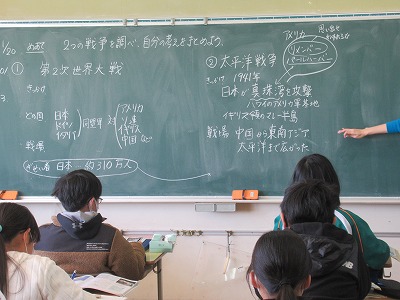 1/20 めあて 2つの戦争を調べ、自分の考えをまとめよう。
① 第2次世界大戦
きっかけ
どの国 日本 ドイツ イタリア 同盟軍 対 アメリカ ソ連 イギリス 中国 など
戦場
ぎせい者 日本 約310万人
② 太平洋戦争
きっかけ 1941年
日本が真珠湾を攻撃
ハワイのアメリカ軍基地
イギリス領のマレー半島
戦場 中国から東南アジア
太平洋まで広がった
アメリカ
リメンバー
パールハーバー